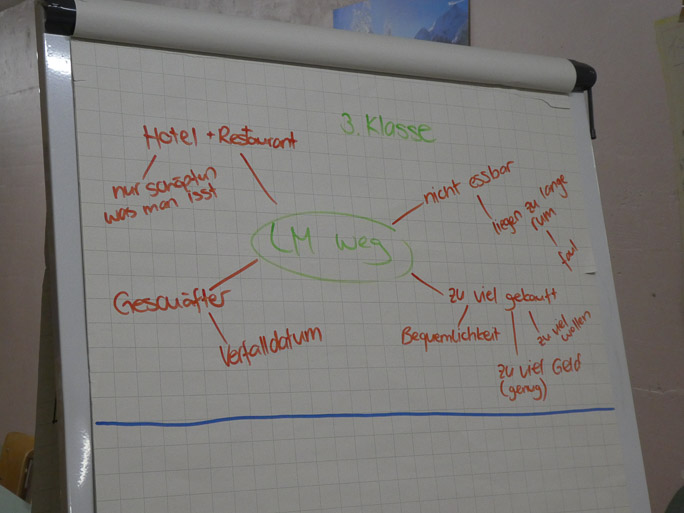 3. Klasse
Hotel + Restaurant
nur schöpfen
was man isst
nicht essbar
liegen zu lange
rum
faul
LM weg
Geschäfter
Verfalldatum
zu viel gekauft
Bequemlichkeit
zu viel
wollen
zu viel Geld
(genug)